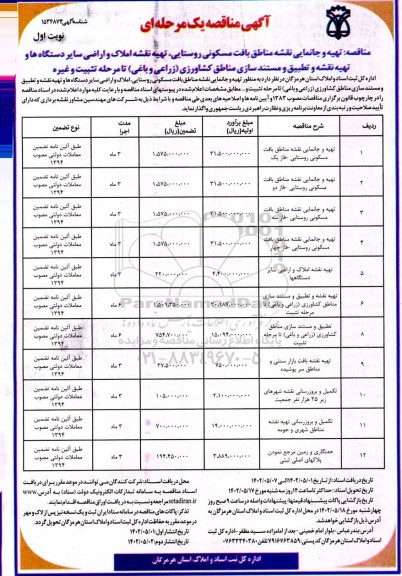 شناسه آگهی ۱۵۳۴۸۷۲
آگهی مناقصه یک مرحله ای
نوبت اول
مناقصه: تهیه و جانمایی نقشه مناطق بافت مسکونی روستایی، تهیه نقشه املاک و اراضی سایر دستگاه ها و
تهیه نقشه و تطبیق و مستند سازی مناطق کشاورزی (زراعی و باغی) تا مرحله تثبیت و غیره
اداره کل ثبت اسناد و املاک استان هرمزگان در نظر دارد به منظور تهیه و جانمایی نقشه مناطق بافت مسکونی روستایی، املاک و اراضی سایر دستگاه ها و تهیه نقشه و تطبیق
و مستند سازی مناطق کشاورزی (زراعی و باغی) تا مرحله تثبیت و... مطابق مشخصات اعلام شده در پیوستهای اسناد مناقصه و با رعایت کلیه موارد اعلام شده در اسناد مناقصه
را در چارچوب قانون برگزاری مناقصات مصوب ۱۳۸۳ و آیین نامه ها و اصلاحیه های بعدی طی مناقصه و با شرایط ذیل به شرکت های مهندسین مشاور نقشه برداری که دارای
تأیید صلاحیت و رتبه بندی از معاونت برنامه ریزی و نظارت راهبردی ریاست جمهوری واگذار نماید.
ردیف شرح مناقصه مبلغ برآورد اولیه(ریال) مبلغ تضمین(ریال) مدت اجرا نوع تضمین
۱ تهیه و جانمایی نقشه مناطق بافت مسکونی روستایی -فاز یک ۳۱،۵۰۰،۰۰۰،۰۰۰ ۱،۵۷۵،۰۰۰،۰۰۰ ۳ ماه طبق آئین نامه تضمین معاملات دولتی مصوب ۱۳۹۴
۲ تهیه و جانمایی نقشه مناطق بافت مسکونی روستایی -فاز دو ۳۱،۵۰۰،۰۰۰،۰۰۰ ۱،۵۷۵،۰۰۰،۰۰۰ ۳ ماه طبق آئین نامه تضمین معاملات دولتی مصوب ۱۳۹۴
۳ تهیه و جانمایی نقشه مناطق بافت مسکونی روستایی -فاز سه ۳۱،۵۰۰،۰۰۰،۰۰۰ ۱،۵۷۵،۰۰۰،۰۰۰ ۳ ماه طبق آئین نامه تضمین معاملات دولتی مصوب ۱۳۹۴
۴ تهیه و جانمایی نقشه مناطق بافت مسکونی روستایی -فاز چهار ۳۱،۵۰۰،۰۰۰،۰۰۰ ۱،۵۷۵،۰۰۰،۰۰۰ ۳ ماه طبق آئین نامه تضمین معاملات دولتی مصوب ۱۳۹۴
۵ تهیه نقشه املاک و اراضی سایر دستگاهها ۴،۴۰۰،۰۰۰،۰۰۰ ۲۲۰،۰۰۰،۰۰۰ ۳ ماه طبق آئین نامه تضمین معاملات دولتی مصوب ۱۳۹۴
۶ تهیه نقشه و تطبیق و مستند سازی مناطق کشاورزی (زراعی و باغی) تا مرحله تثبیت ۶ ماه طبق آئین نامه تضمین معاملات دولتی مصوب ۱۳۹۴
۸ تطبیق و مستند سازی مناطق کشاورزی (زراعی و باغی) تا مرحله تثبیت ۶ ماه طبق آئین نامه تضمین معاملات دولتی مصوب ۱۳۹۴
۹ تهیه نقشه بافت بازار سنتی و مناطق سر پوشیده ۷۵۰،۰۰۰،۰۰۰ ۳۷،۵۰۰،۰۰۰ ۳ ماه طبق آئین نامه تضمین معاملات دولتی مصوب ۱۳۹۴
۱۰ تکمیل و بروزرسانی نقشه شهرهای زیر ۲۵ هزار نفر جمعیت ۲،۱۰۰،۰۰۰،۰۰۰ ۱۰۵،۰۰۰،۰۰۰ ۳ ماه طبق آئین نامه تضمین معاملات دولتی مصوب ۱۳۹۴
۱۱ تکمیل و بروزرسانی تهیه نقشه مناطق شهری و حومه ۱۴،۰۰۰،۰۰۰،۰۰۰ ۷۰۰،۰۰۰،۰۰۰ ۳ ماه طبق آئین نامه تضمین معاملات دولتی مصوب ۱۳۹۴
۱۲ حدنگاری و زمین مرجع نمودن پلاکهای اصلی ثبتی ۳،۸۸۹،۰۰۰،۰۰۰ ۱۹۴،۴۵۰،۰۰۰ ۳ ماه طبق آئین نامه تضمین معاملات دولتی مصوب ۱۳۹۴
تاریخ دریافت اسناد: از تاریخ ۱۴۰۲/۰۵/۰۱ الی ۱۴۰۲/۰۵/۰۷
تاریخ تحویل اسناد: حداکثر تا ساعت ۱۴ روز سه شنبه مورخ ۱۴۰۲/۰۵/۱۷
تاریخ بازگشایی پاکات پیشنهاد قیمتها: پیشنهادات واصله در ساعت ۹ صبح روز
چهارشنبه مورخ ۱۴۰۲/۰۵/۱۸ در محل اداره کل ثبت اسناد و املاک استان هرمزگان به
آدرس ذیل بازگشایی خواهد شد.
آدرس: بندرعباس -بلوار امام خمینی -بعد از امامزاده سید مظفر -اداره کل ثبت
اسناد و املاک استان هرمزگان کد پستی: ۷۹۱۶۷۶۳۸۵۹ تلفن ۰۷۶۳۳۳۴۰۳۸۰
محل دریافت اسناد: شرکت کنندگان می توانند در موعد مقرر برای دریافت
اسناد مناقصه به سامانه تدارکات الکترونیک دولت (ستاد) به آدرس www.
setadiran.ir مراجعه و نسبت به دریافت اوراق مناقصه اقدام نمایند.
تاریخ انتشار اول: ۱۴۰۲/۰۵/۰۱
تاریخ انتشار دوم: ۱۴۰۲/۰۵/۰۲
اداره کل ثبت اسناد و املاک استان هرمزگان
پایگاه اطلاع رسانی مناقصه و مزایده
۰۲۱-۸۸۳۴۹۶۷۰-۵